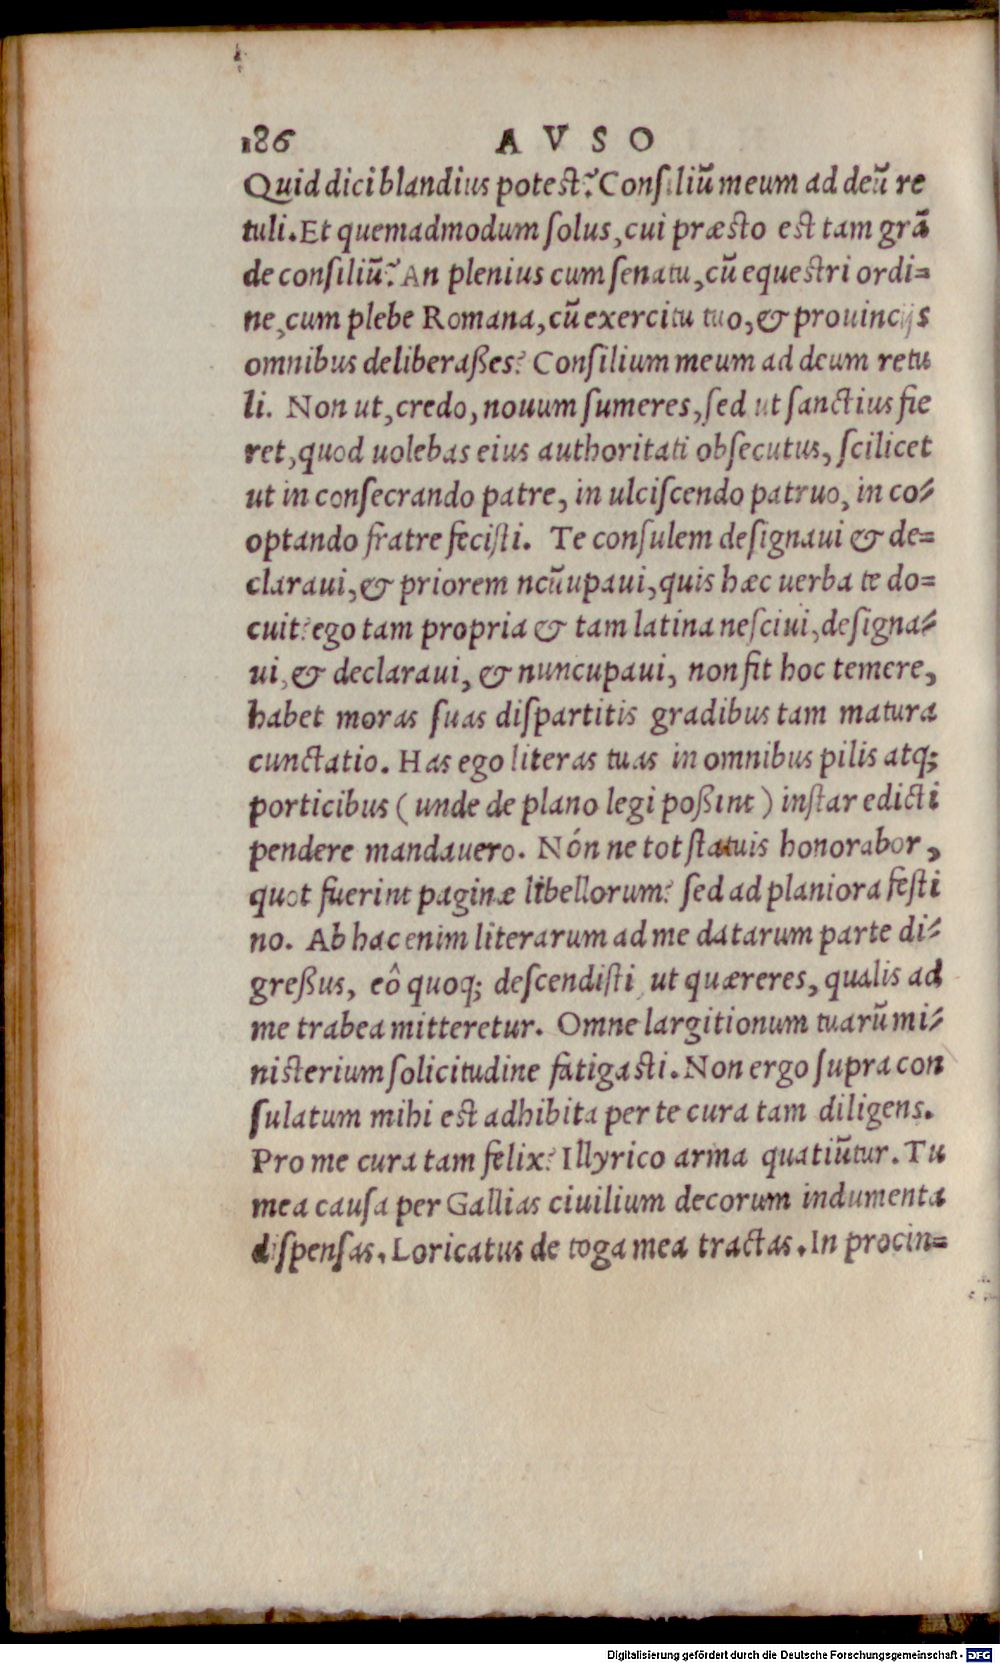 186 AVSO
Quid dici blandius potest? Consiliū meum ad deū re
tuli. Et quemadmodum solus, cui præsto est tam grā
de consiliū? An plenius cum senatu, cū equestri ordi=
ne, cum plebe Romana, cū exercitu tuo, & prouincijs
omnibus deliberaßes? Consilium meum ad deum retu
li. Non ut, credo, nouum sumeres, sed ut sanctius fie
ret, quod uolebas eius authoritati obsecutus, scilicet
ut in consecrando patre, in ulciscendo patruo, in co=
optando fratre fecisti. Te consulem designaui & de=
claraui, & priorem ncūupaui, quis hæc uerba te do=
cuit? ego tam propria & tam latina nesciui, designa=
ui, & declaraui, & nuncupaui, non fit hoc temere,
habet moras suas dispartitis gradibus tam matura
cunctatio. Has ego literas tuas in omnibus pilis atq;
porticibus (unde de plano legi poßint) instar edicti
pendere mandauero. Nón ne tot statuis honorabor,
quot fuerint paginæ libellorum? sed ad planiora festi
no. Ab hac enim literarum ad me datarum parte di=
greßus, eô quoq; descendisti, ut quæreres, qualis ad
me trabea mitteretur. Omne largitionum tuarū mi=
nisterium solicitudine fatigasti. Non ergo supra con
sulatum mihi est adhibita per te cura tam diligens.
Pro me cura tam felix? Illyrico arma quatiūtur. Tu
mea causa per Gallias ciuilium decorum indumenta
dispensas. Loricatus de toga mea tractas. In procin=
Digitalisierung gefördert durch die Deutsche Forschungsgemeinschaft - DFG